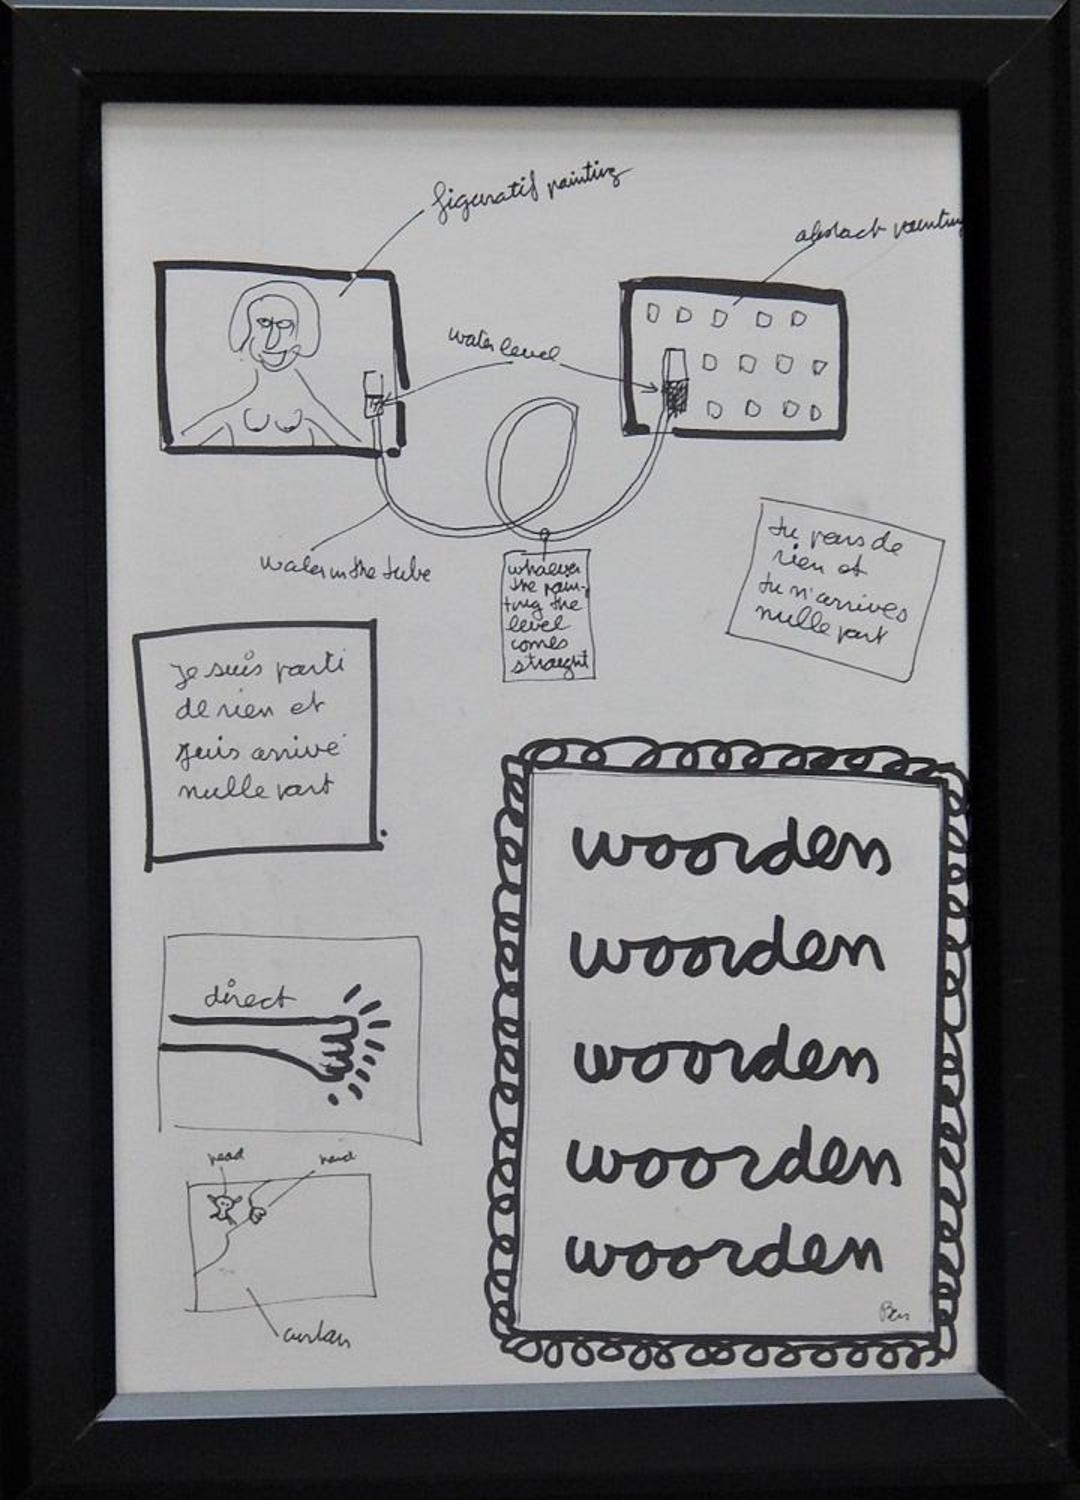 figuratif painting
abstract painting
water level
water in the tube
whaever
the pain-
ting the
level
comes
straeght
tu pars de
rien et
tu n'arrives
nulle part
je suis parti
de rien et
suis arrivé
nulle part
woorden
woorden
woorden
woorden
woorden
Ben
direct
head
hand